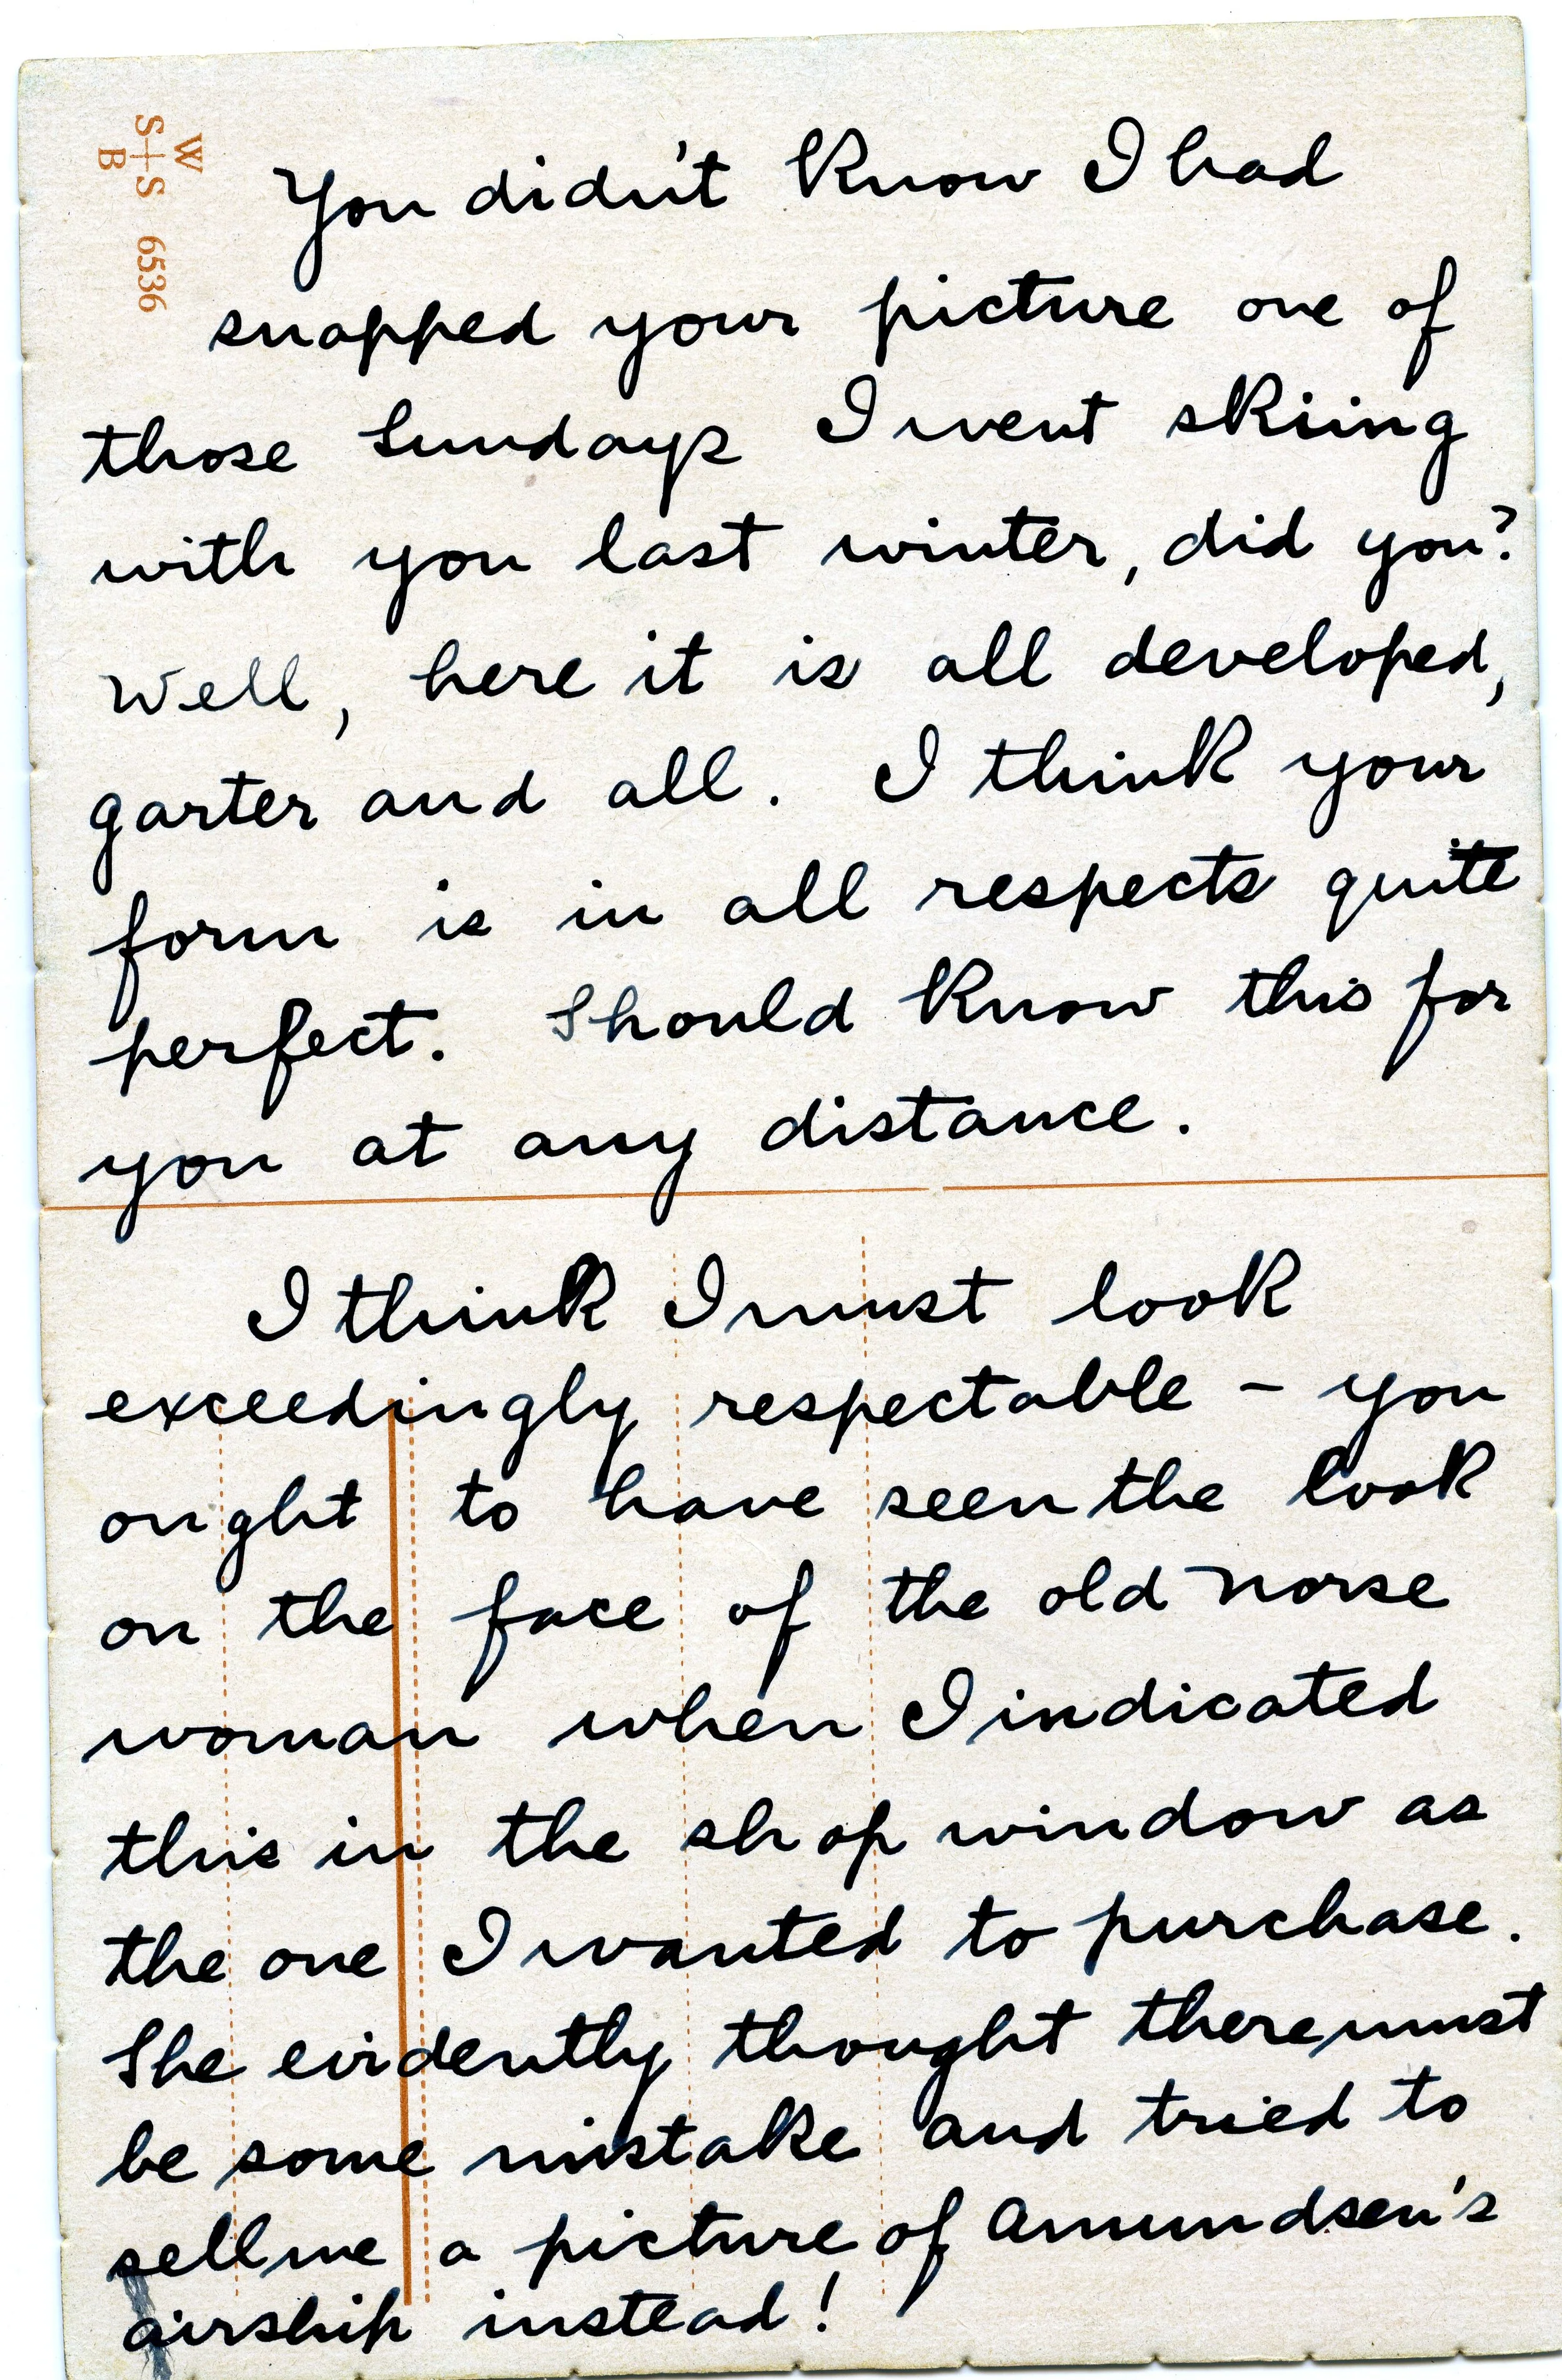 W
S+S
B
6536
You didn't know I had
snapped your picture one of
those Sundays I went skiing
with you last winter, did you?
Well, here it is all developed,
garter and all. I think your
form is in all respects quite
perfect. Should know this for
you at any distance.
I think I must look
exceedingly respectable – you
ought to have seen the look
on the face of the old Norse
woman when I indicated
this in the shop window as
the one I wanted to purchase.
She evidently thought there must
be some mistake and tried to
sell me a picture of Amundsen's
airship instead!